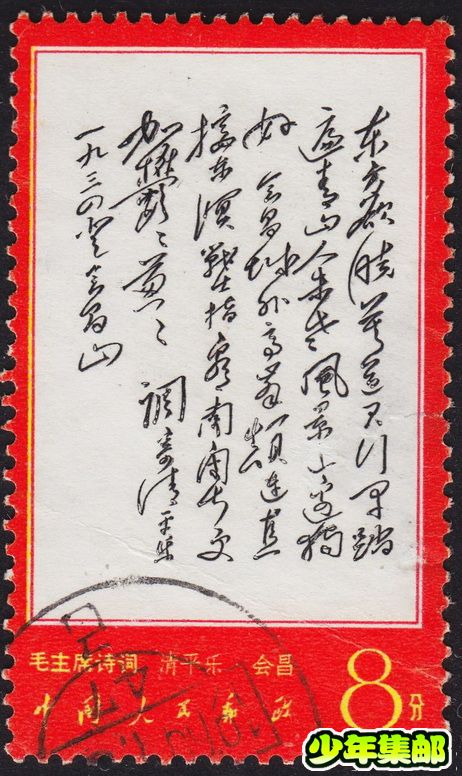 东方欲晓莫道君行早踏
遍青山人未老風景这边独
好 会昌城外高峯颠连直
接东溟戰士指看南粤更
加鬱〻葱〻 調寄清平乐
一九三四登会昌山
毛主席诗词 清平乐 会昌
中国人民邮政
8分
少年集邮